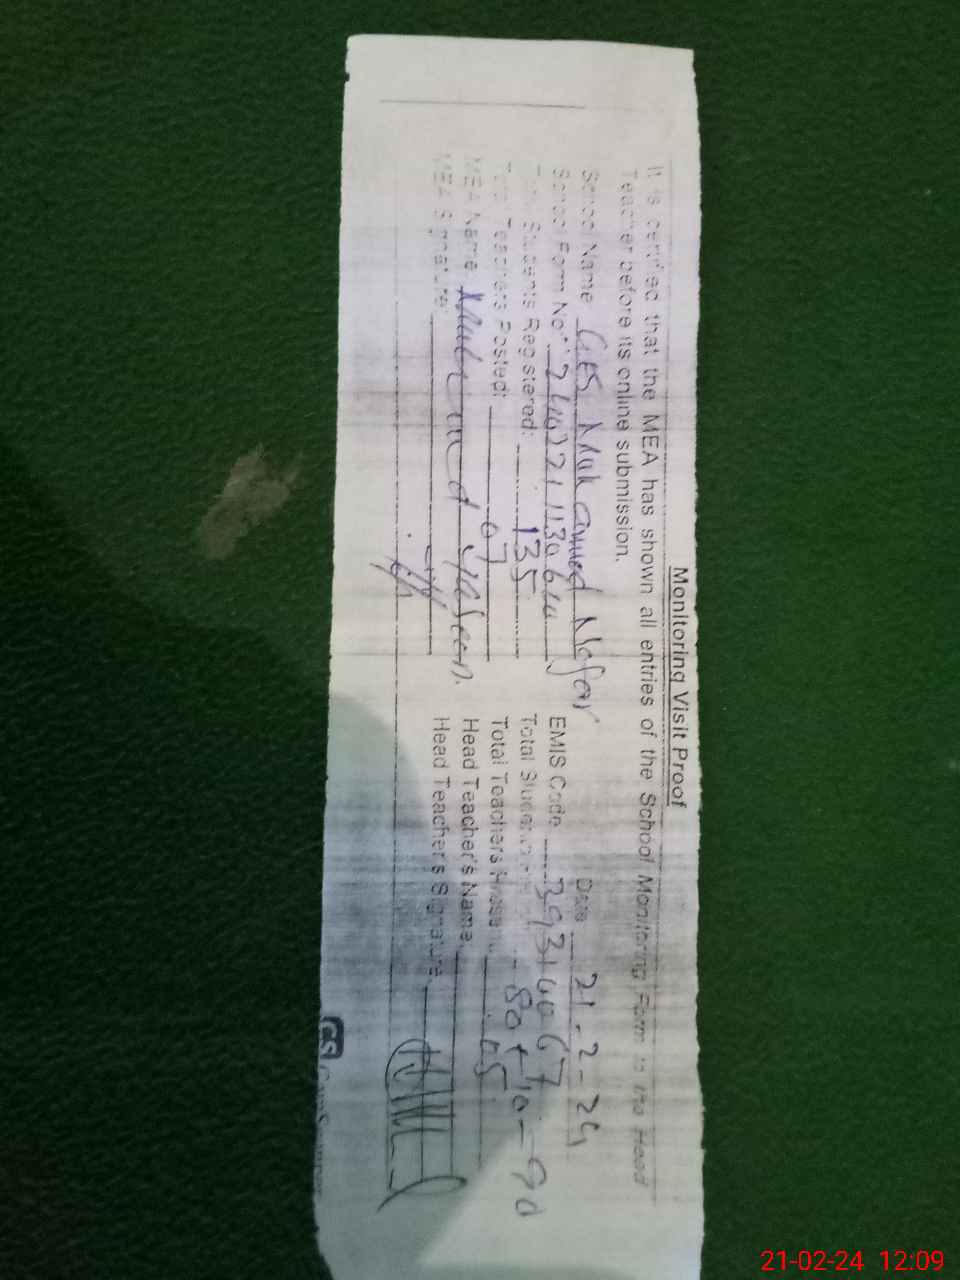 Monitoring Visit Proof
It is certified that the MEA has shown all entries of the School Monitoring Form to the Head
Teacher before its online submission.
School Name GES Muhammed Nagar Date 21-2-24
School Form No: EMIS Code
Total Students Registered: 135 Total Students 80+10=90
Total Teachers Posted: 07 Total Teachers 05
MEA Name: Muhammad Yaseen. Head Teacher's Name
MEA Signature: Head Teacher's Signature
CS CamScanner
21-02-24 12:09